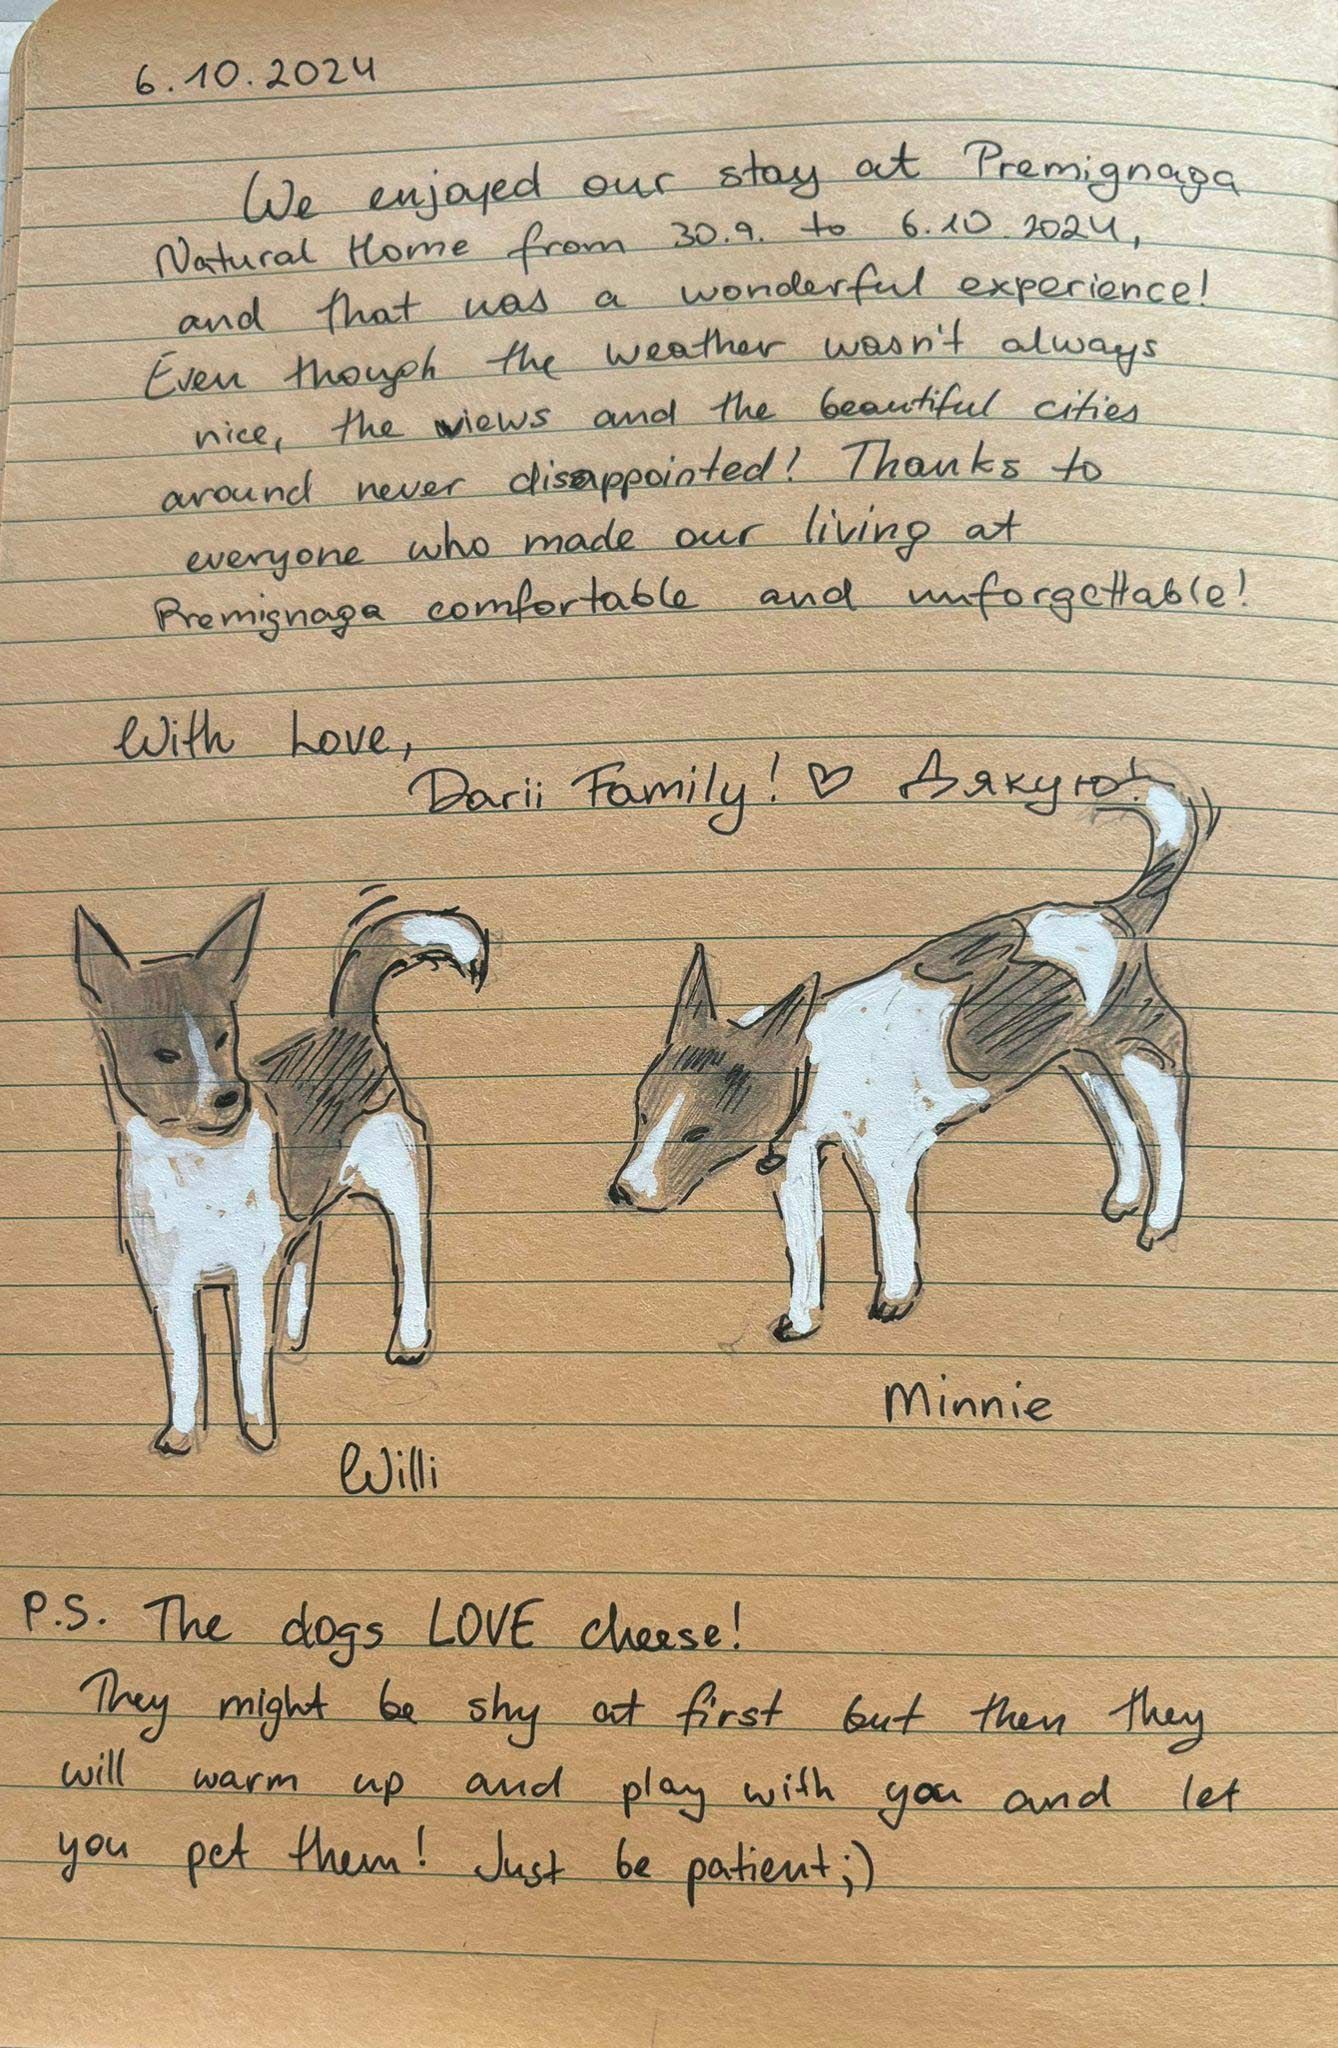 6.10.2024
We enjoyed our stay at Premignaga
Natural Home from 30.9. to 6.10.2024,
and that was a wonderful experience!
Even though the weather wasn't always
nice, the views and the beautiful cities
around never disappointed! Thanks to
everyone who made our living at
Premignaga comfortable and unforgettable!
With Love,
Darii Family! ♡ Дякую!
Minnie
Willi
P.S. The dogs LOVE cheese!
They might be shy at first but then they
will warm up and play with you and let
you pet them! Just be patient;)